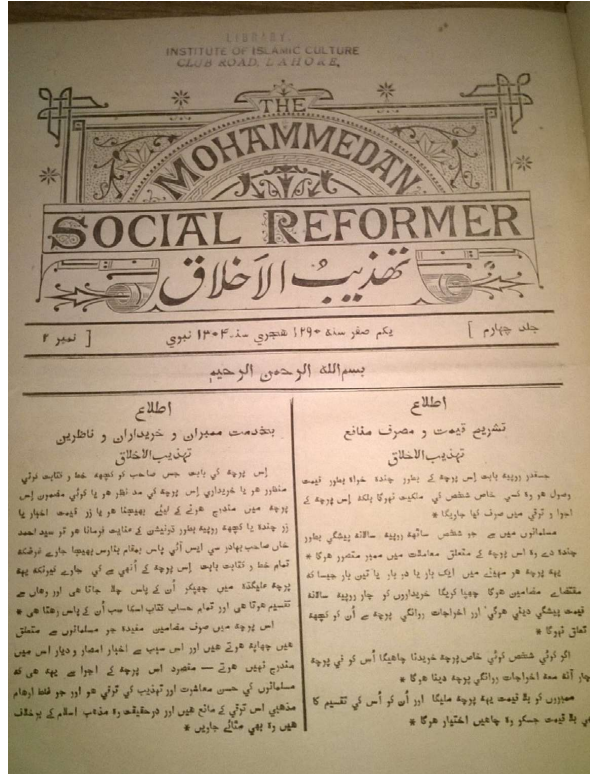 LIBRARY.
INSTITUTE OF ISLAMIC CULTURE
CLUB ROAD, LAHORE.
THE
MOHAMMEDAN
SOCIAL REFORMER
تهذيبُ الاَخلاق
جلد چهارم ]
يكم صفر سنه ۱۲۹۰ هجري سنه ۱۳۰۴ نبوي
[ نمبر ۲
بسم‌الله الرحمن الرحيم
اطلاع
تشريح قيمت و مصرف منافع
تهذيب‌الاخلاق
جسقدر روپيه بابت اِس پرچه كے بطور چنده خواه بطور قيمت
وصول هو وه كسي خاص شخص كي ملكيت نهوگا بلكه اِس پرچه كے
اجرا و ترقي ميں صرف كيا جاويگا *
مسلمانوں ميں سے جو شخص ساٹهه روپيه سالانه پيشگي بطور
چنده دے وه اس پرچه كے متعلق معاملات ميں ممبر متصور هوگا *
يهه پرچه هر مهينے ميں ايك بار يا دو بار يا تين بار جيسا كه
مقتضاے مضامين هوگا چهپا كريگا خريداروں كو چار روپيه سالانه
قيمت پيشگي ديني هوگي اور اخراجات روانگي پرچه سے اُن كو كچهه
تعلق نهوگا *
اگر كوئي شخص كوئي خاص پرچه خريدنا چاهيگا اُس كو في پرچه
چار آنه معه اخراجات روانگي پرچه دينا هوگا *
ممبروں كو بلا قيمت يهه پرچه مليگا اور اُن كو اُس كي تقسيم كا
بلا قيمت جسكو وه چاهيں اختيار هوگا *
اطلاع
بخدمت ممبران و خريداران و ناظرين
تهذيب‌الاخلاق
اِس پرچه كي بابت جس صاحب كو كچهه خط و كتابت كرني
منظور هو يا خريداري اِس پرچه كي مد نظر هو يا كوئي مضمون اِس
پرچه ميں مندرج هونے كے ليئے بهيجنا هو يا زر قيمت اخبار يا
زر چنده يا كچهه روپيه بطور ڈونيشن كے عنايت فرمانا هو تو سيد احمد
خاں صاحب بهادر سي ايس آئي پاس بمقام بنارس بهيجا جاوے غرضكه
تمام خط و كتابت بابت اِس پرچه كے اُنهي سے كي جاوے كيونكه يهه
پرچه عليگڈه ميں چهپكر اُن كے پاس چلا جاتا هے اور وهاں سے
تقسيم هوتا هے اور تمام حساب كتاب اسكا سب اُن كے پاس رهتا هے *
اس پرچه ميں صرف مضامين مفيده جو مسلمانوں سے متعلق
هيں چهاپے هوتے هيں اور اس سبب سے اخبار امصار و ديار اس ميں
مندرج نهيں هوتے — مقصود اس پرچه كے اجرا سے يهه هے كه
مسلمانوں كي حسن معاشرت اور تهذيب كي ترقي هو اور جو غلط اوهام
مذهبي اس ترقي كے مانع هيں اور درحقيقت وه مذهب اسلام كے برخلاف
هيں وه بهي مٹائے جاويں *